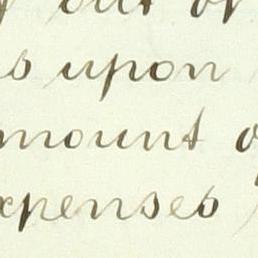 out of
s upon
mount o
xpenses